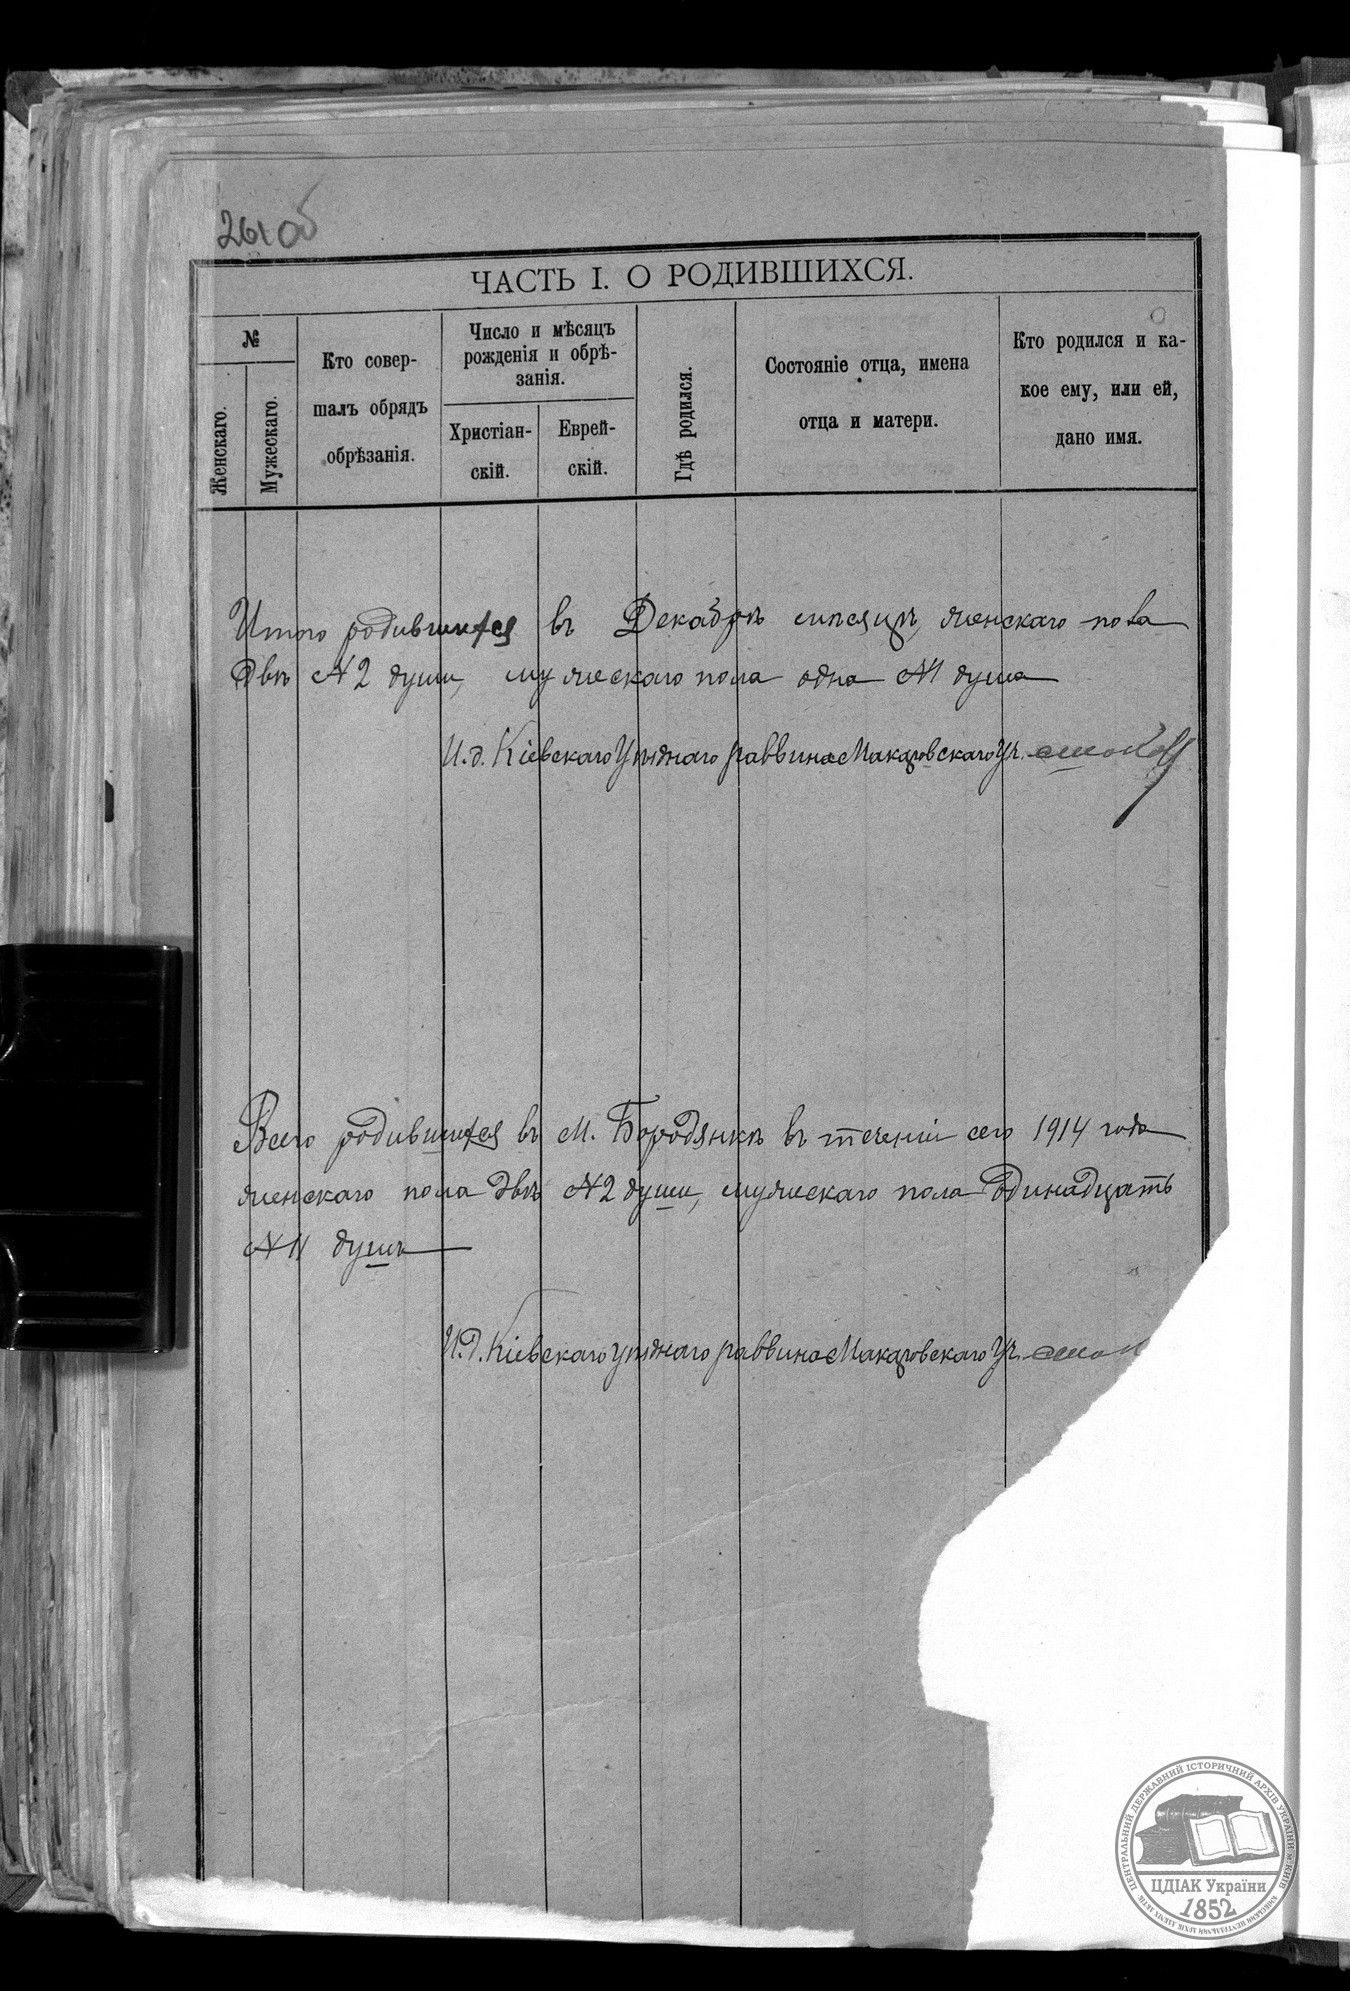 261 об
ЧАСТЬ I. О РОДИВШИХСЯ.
№
Женскаго.
Мужескаго.
Кто совер-
шалъ обрядъ
обрѣзанія.
Число и мѣсяцъ
рожденія и обрѣ-
занія.
Христіан-
скій.
Еврей-
скій.
Гдѣ родился.
Состояніе отца, имена
отца и матери.
Кто родился и ка-
кое ему, или ей,
дано имя.
Итого родившихся въ Декабрѣ мѣсяцѣ, женскаго пола
двѣ №2 души, мужескаго пола одна №1 душа
И.д. Кіевскаго Уѣзднаго раввина Макаровскаго Уч.
Всего родившихся въ м. Бородянкѣ въ теченіи сего 1914 года
женскаго пола двѣ №2 души, мужескаго пола Одинадцать
№11 душъ
И.д. Кіевскаго уѣзднаго раввина Макаровскаго Уч.
ЦЕНТРАЛЬНИЙ ДЕРЖАВНИЙ ІСТОРИЧНИЙ АРХІВ УКРАЇНИ м. КИЇВ
ЦДІАК України
1852